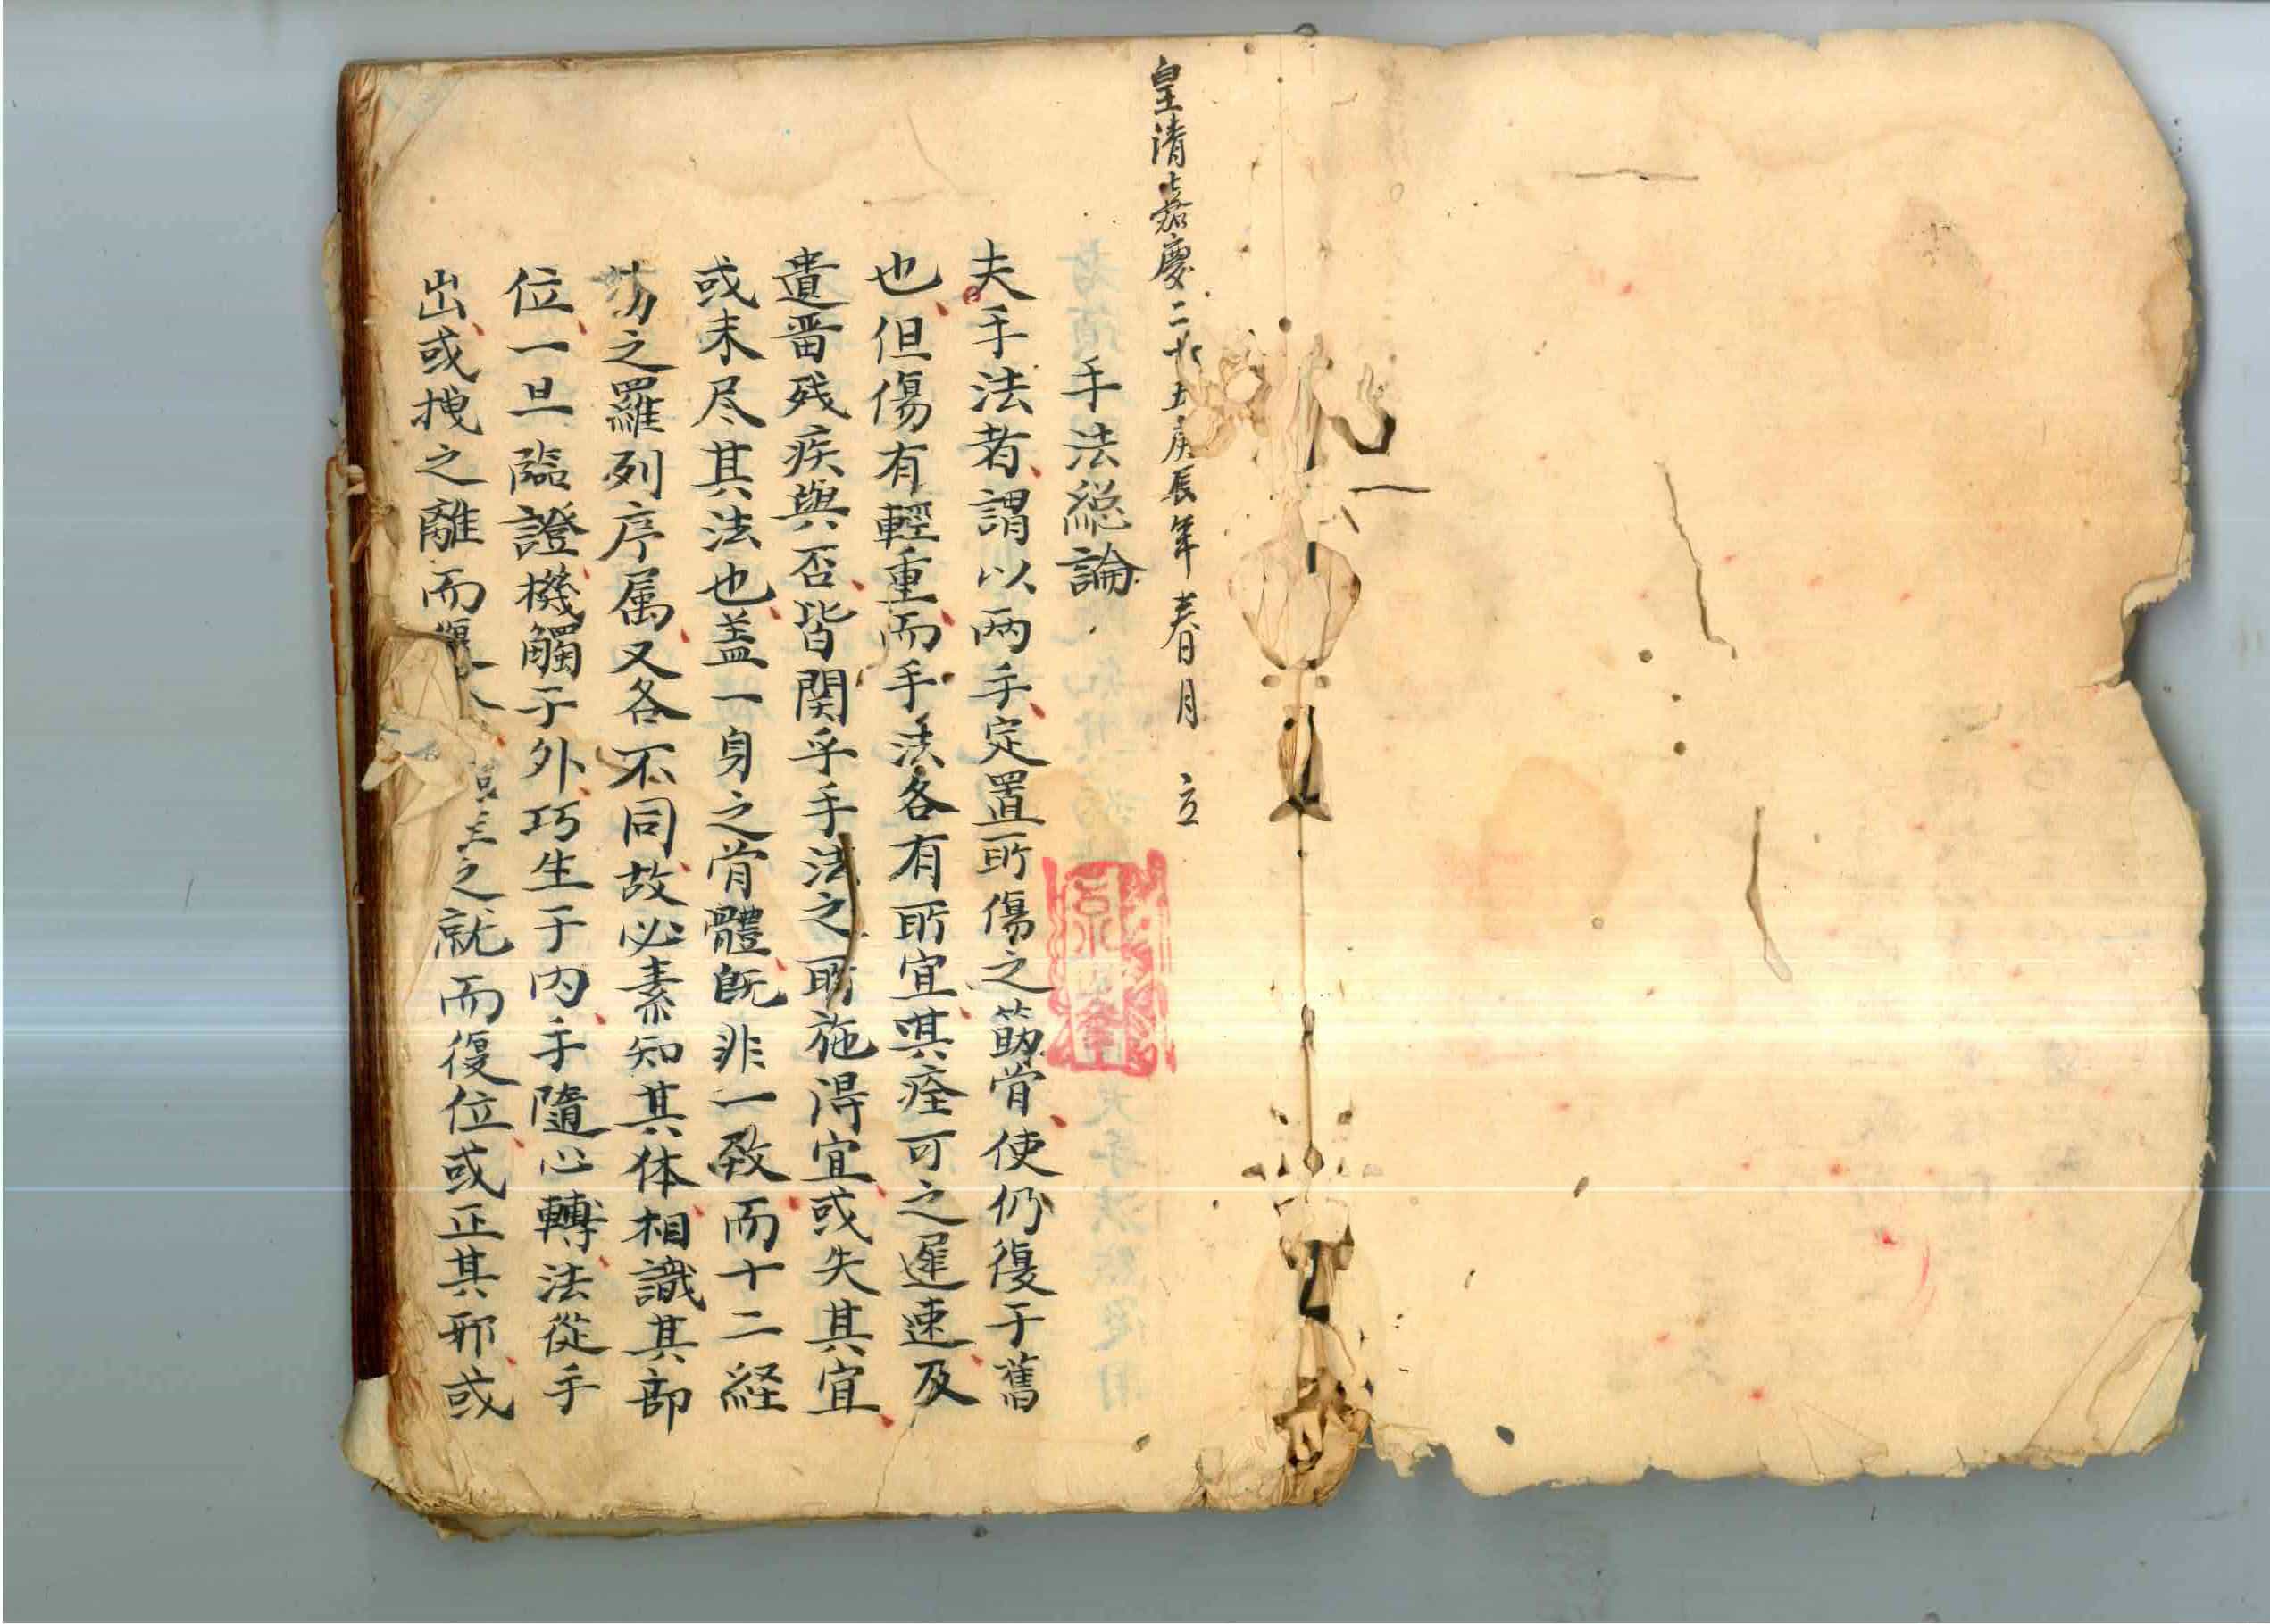 皇清嘉慶二十五庚辰年春月 立
手法総論
夫手法者謂以両手定置所傷之筋骨使仍復于舊
也但傷有輕重而手法各有所宜其痊可之遲速及
遺畱残疾與否皆関乎手法之所施得宜或失其宜
或未尽其法也盖一身之骨體既非一致而十二経
筋之羅列序属又各不同故必素知其体相識其部
位一旦臨證機觸于外巧生于内手隨心轉法從手
出或拽之離而復之就而復位或正其邪或